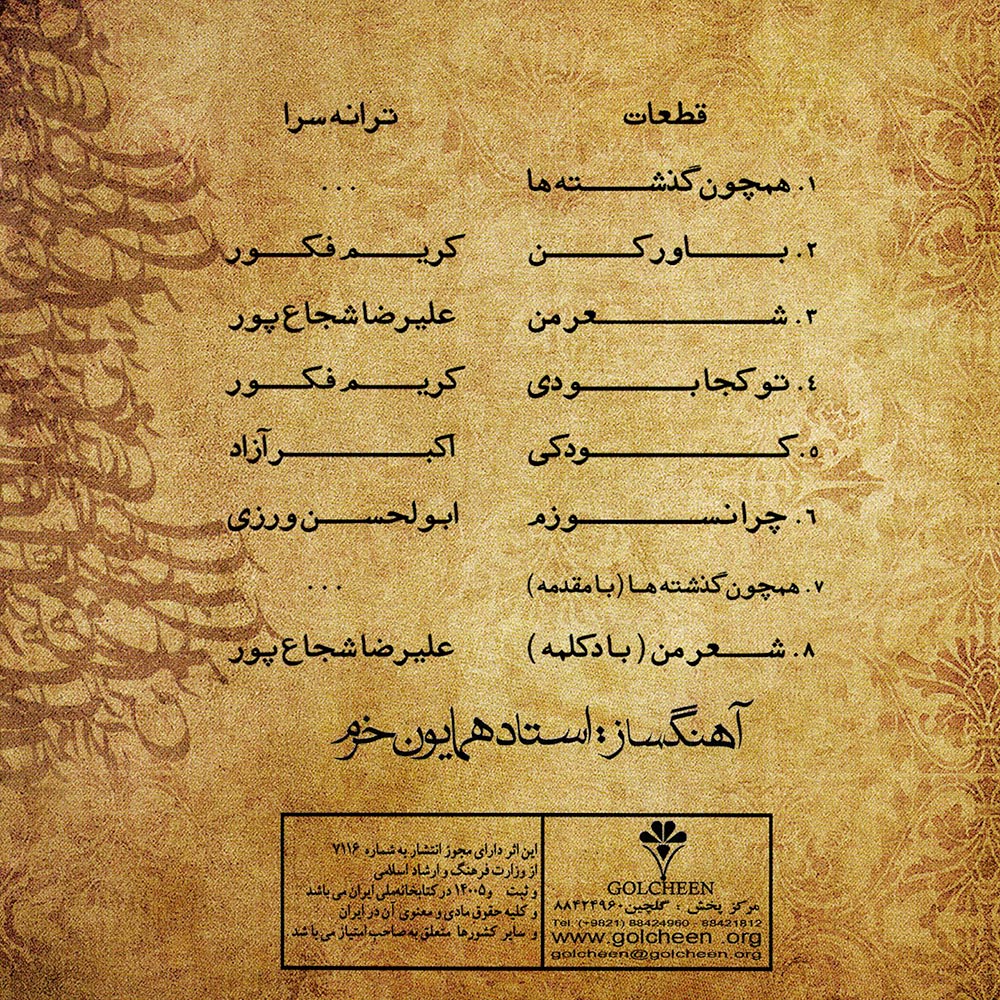 قطعات ترانه سرا
۱. همچون گذشته ها ...
۲. باور کن کریم فکور
۳. شعر من علیرضا شجاع پور
٤. تو کجا بودی کریم فکور
۵. کودکی اکبر آزاد
٦. چرا نسوزم ابولحسن ورزی
۷. همچون گذشته ها (با مقدمه) ...
۸. شعر من (با دکلمه) علیرضا شجاع پور
آهنگساز: استاد همایون خرم
GOLCHEEN
مرکز پخش : گلچین ۸۸۴۲۴۹۶۰
Tel: (+9821) 88424960 - 88421812
www.golcheen .org
golcheen@golcheen.org
این اثر دارای مجوز انتشار به شماره ۷۱۱۶
از وزارت فرهنگ و ارشاد اسلامی
و ثبت و۱۴۰۰۵ در کتابخانه ملی ایران می باشد
و کلیه حقوق مادی و معنوی آن در ایران
و سایر کشورها متعلق به صاحب امتیاز می باشد